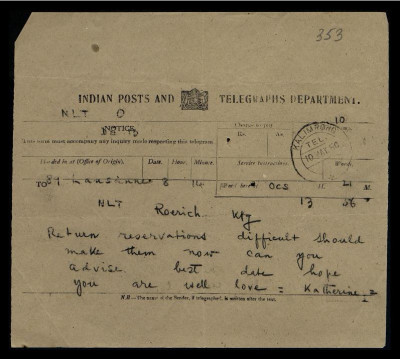 353
INDIAN POSTS AND TELEGRAPHS DEPARTMENT.
NLT O
10
NOTICE.
This form must accompany any inquiry made respecting this telegram.
Charges to pay
Rs. As.
KALIMPONG
TEL
Handed in at (Office of Origin). Date. Hour. Minute. Service Instructions. Words.
TO 89 Lausanne 8 14
H. M.
13 56
NLT Roerich Kpg
Return reservations difficult should
make them now can you
advise best date hope
you are well love = Katherine =
N.B.—The name of the Sender, if telegraphed, is written after the text.